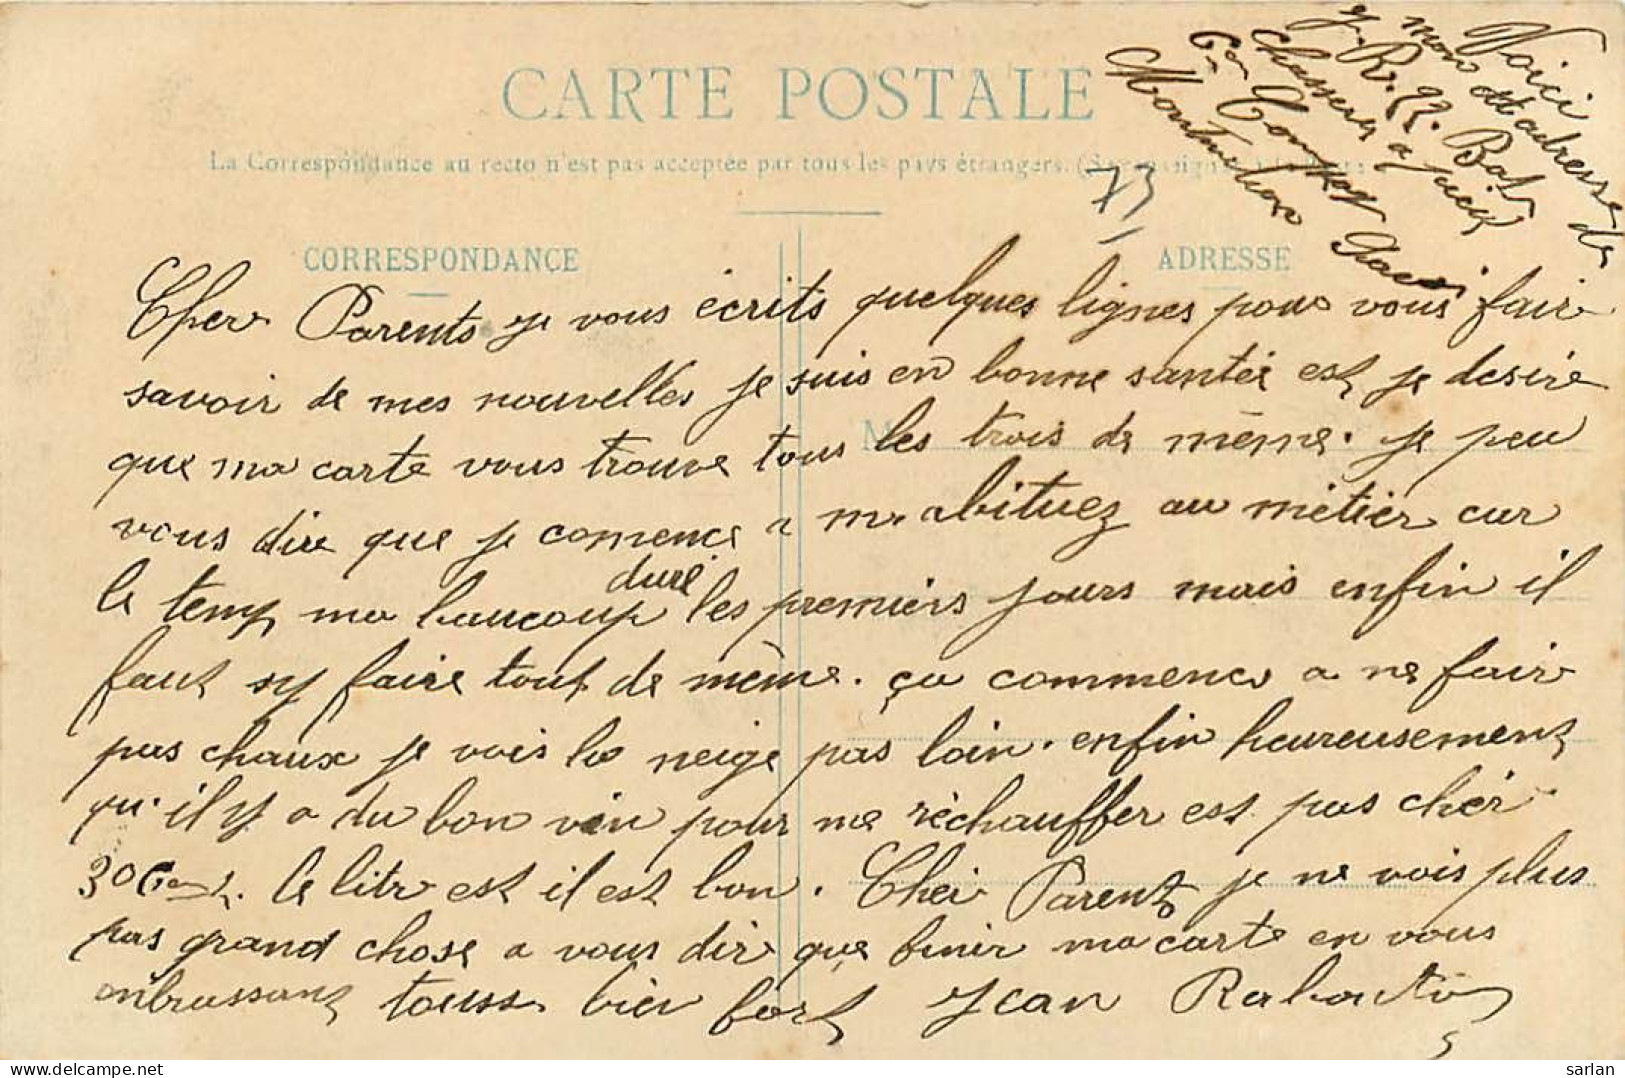 CARTE POSTALE
La Correspondance au recto n'est pas acceptée par tous les pays étrangers.
CORRESPONDANCE
ADRESSE
Voici
mon adresse
J. R. 22. Bat
chasseur a pied
6e Compag
73
M
Cher Parents je vous écrits quelques lignes pour vous fair
savoir de mes nouvelles je suis en bonne santée est je desire
que ma carte vous trouve tous les trois de même. je peu
vous dire que je comence a m. abituez au métier car
le temp ma baucoup duré les premiers jours mais enfin il
faut sy faire tout de même. ça commence a ne fair
pas chaux je vois la neige pas loin. enfin heureusement
qu'il y a du bon vin pour me réchauffer est pas chér
30 le litre est il est bon. Cher Parents je ne vois plus
pas grand chose a vous dire que finir ma carte en vous
enbrassant touss bien fort Jean
sarlan